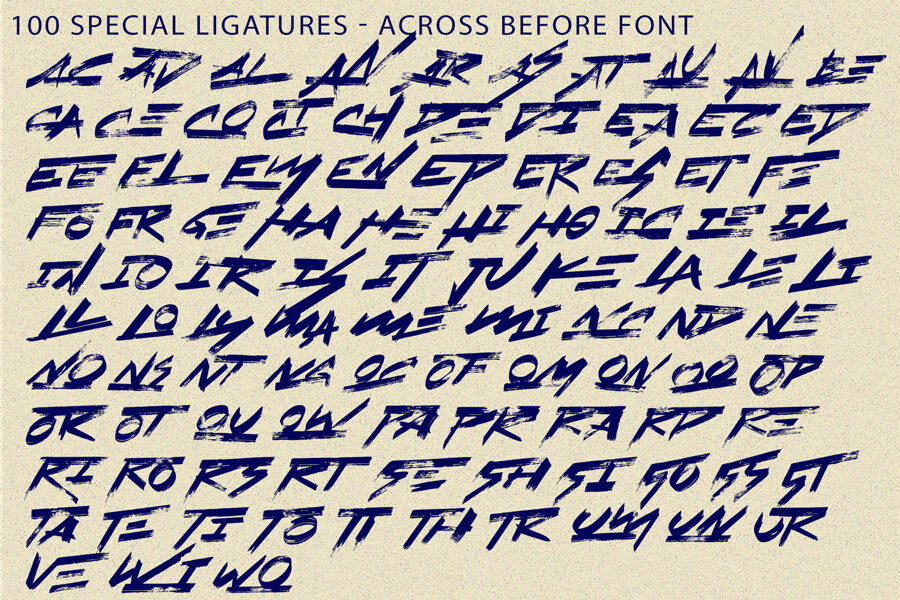 100 SPECIAL LIGATURES - ACROSS BEFORE FONT
AC AD AL AN AR AS AT AU AV BE
CA CE CO CT CH DE DI EA EC ED
EE EL EM EN EP ER ES ET FE
FO FR GE HA HE HI HO IC IE IL
IN IO IR IS IT JU KE LA LE LI
LL LO LY MA ME MI NC ND NE
NO NS NT NG OC OF OM ON OO OP
OR OT OU OW PA PR RA RD RE
RI RO RS RT SE SH SI SO SS ST
TA TE TI TO TT TH TR UM UN UR
VE WI WO